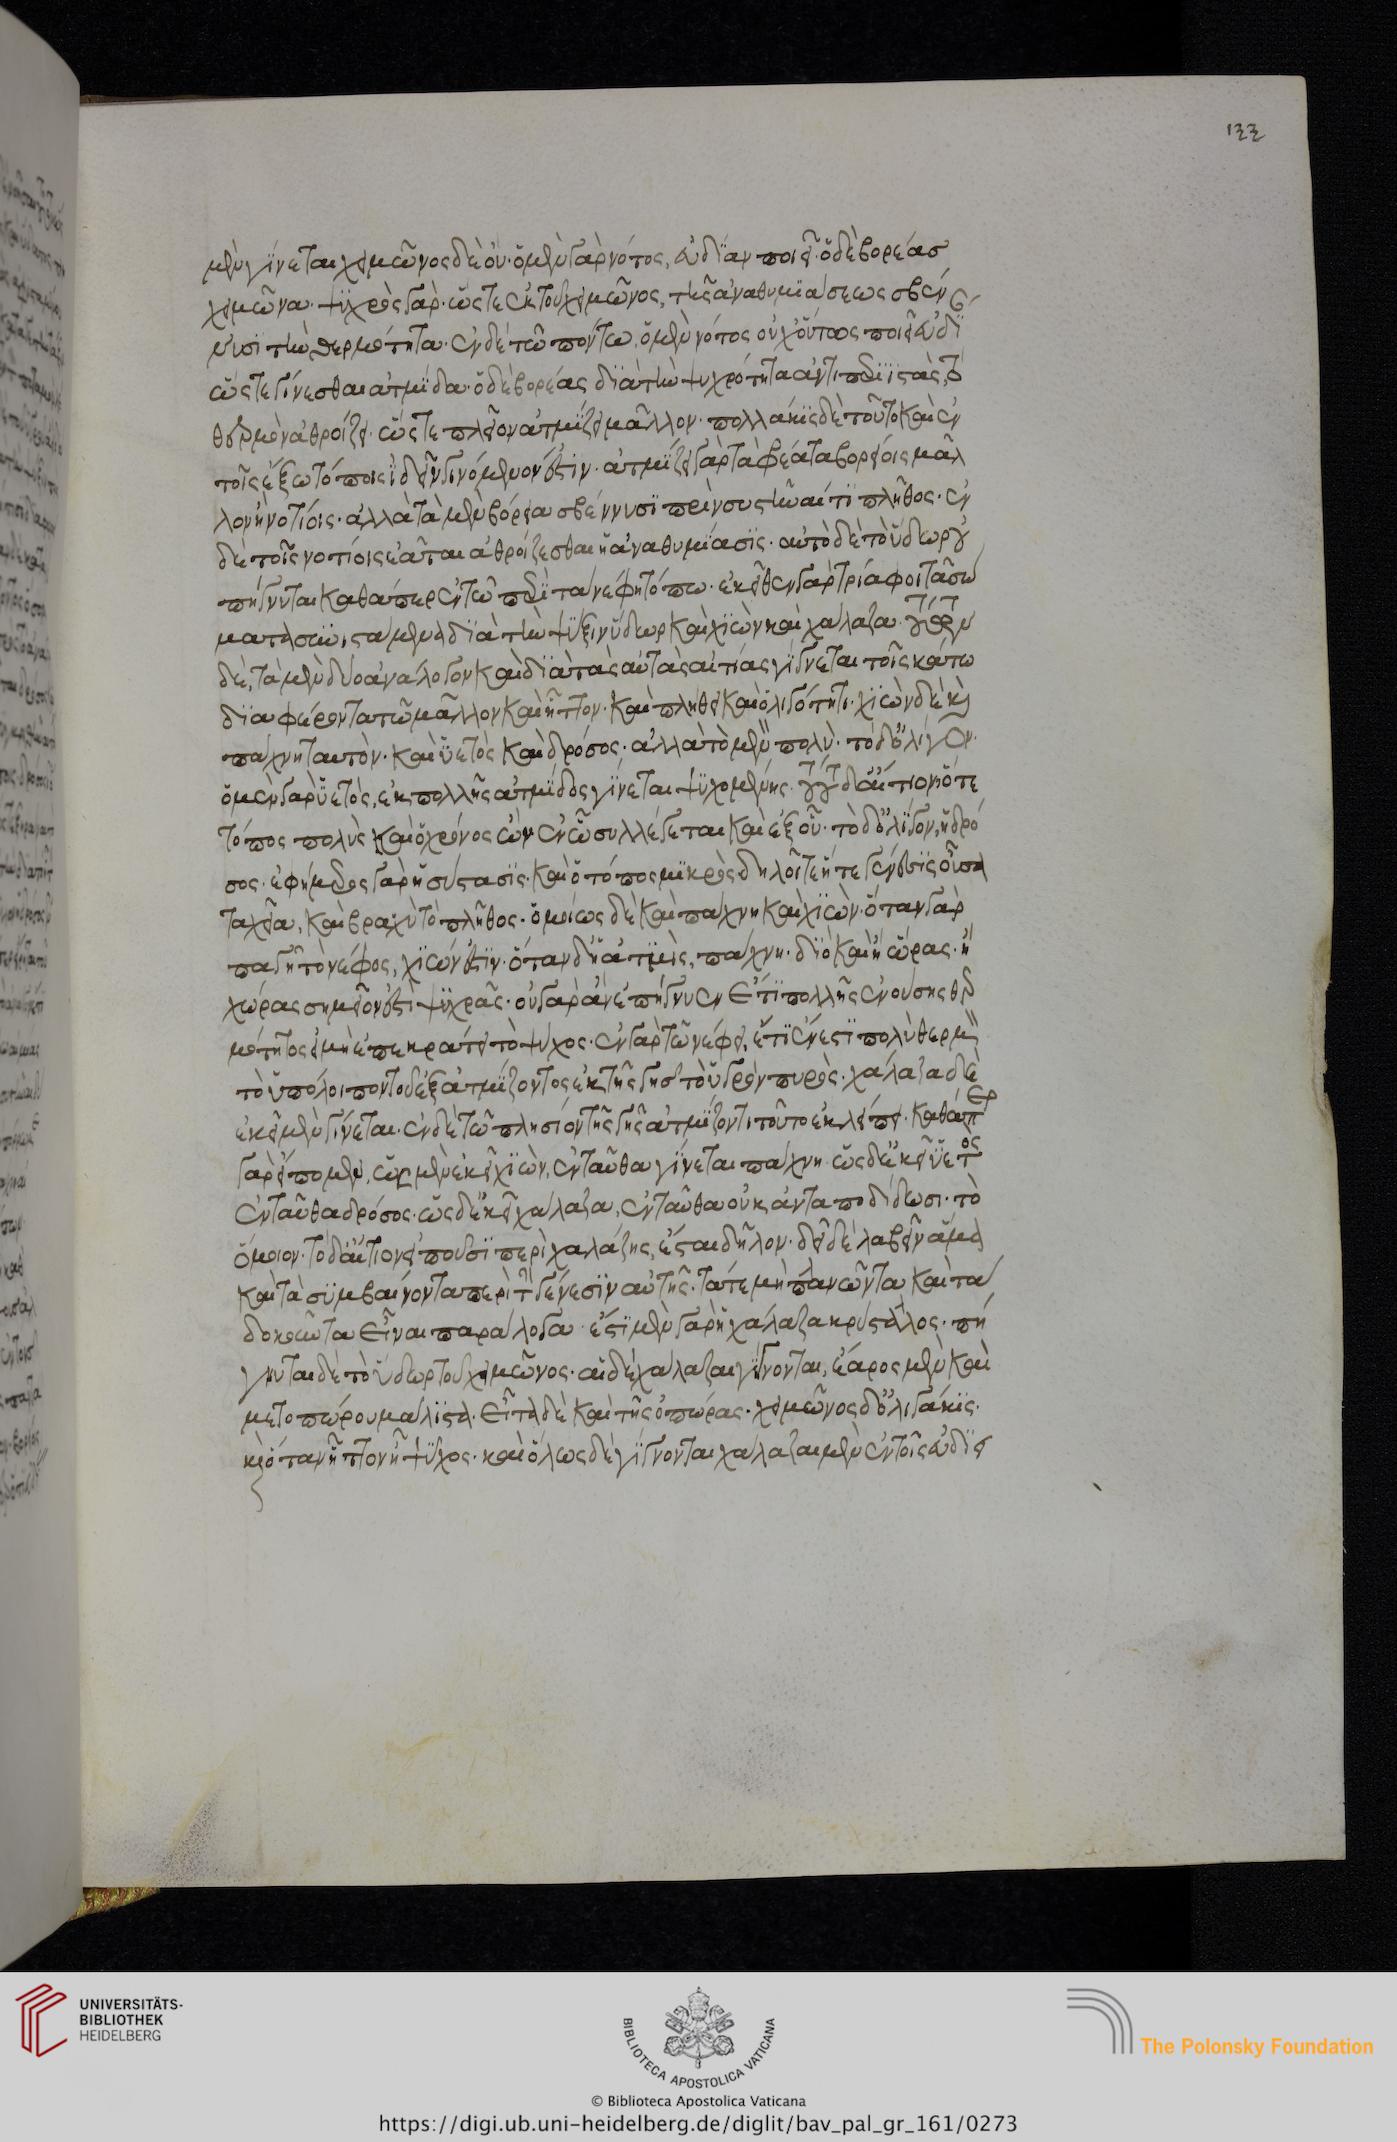 133
μὲν γίνεται χειμῶνος δὲ οὔ· ὁ μὲν γὰρ νότος, εὐδίαν ποιεῖ· ὁ δὲ βορέας
χειμῶνα· ψυχρὸς γὰρ· ὥστε ἐκ τοῦ χειμῶνος, τῆς ἀναθυμιάσεως σβεν
νυσι τὴν θερμότητα· ἐν δὲ τῶ πόντω, ὁ μὲν νότος οὐχ οὕτως ποιεῖ εὐδί
ὥστε γίνεσθαι ἀτμίδα· ὁ δὲ βορέας διὰ τὴν ψυχρότητα ἀντιπεριιστὰς τὸ
θερμὸν ἀθροίζει· ὥστε πλεῖον ἀτμίζει μᾶλλον· πολλάκις δὲ τοῦτο καὶ ἐν
τοῖς ἔξω τόποις ἰδεῖν γινόμενον ἐστιν· ἀτμίζει γὰρ τὰ φρέατα βορείοις μᾶλ
λον ἢ νοτίοις· ἀλλὰ τὰ μὲν βόρεια σβέννυσι πρὶν συστῆναί τι πλῆθος· ἐν
δὲ τοῖς νοτίοις ἐᾶται ἀθροίζεσθαι ἡ ἀναθυμίασις· αὐτὸ δὲ τὸ ὕδωρ οὐ
πήγνυται καθάπερ ἐν τῶ περὶ τὰ νέφη τόπω· ἐκεῖθεν γὰρ τρία φοιτᾶ σώ
ματα συνιστάμενα διὰ τὴν ψύξιν ὕδωρ καὶ χιὼν καὶ χάλαζα·
δὲ, τὰ μὲν δύο ἀνάλογον καὶ διὰ τὰς αὐτὰς αἰτίας γίγνεται τοῖς κάτω
διαφέροντα τῶ μᾶλλον καὶ ἧττον· καὶ πλήθει καὶ ὀλιγότητι· χιὼν δὲ καὶ
πάχνη ταυτὸν· καὶ ὑετὸς καὶ δρόσος· ἀλλὰ τὸ μὲν πολὺ· τὸ δ' ὀλίγον·
ὁ μὲν γὰρ ὑετὸς, ἐκ πολλῆς ἀτμίδος γίνεται ψυχομένης· τούτου δ' αἴτιον ὅ τε
τόπος πολὺς καὶ ὁ χρόνος ὢν ἐν ὧ συλλέγεται καὶ ἐξ οὗ· τὸ δ' ὀλίγον, ἡ δρό
σος· ἐφήμερος γὰρ ἡ σύστασις· καὶ ὁ τόπος μικρὸς δηλοῖ τε ἥ τε γένεσις οὖσα
ταχεῖα, καὶ βραχὺ τὸ πλῆθος· ὁμοίως δὲ καὶ πάχνη καὶ χιὼν· ὅταν γὰρ
παγῆ τὸ νέφος, χιών ἐστιν· ὅταν δ' ἡ ἀτμὶς, πάχνη· διὸ καὶ ἢ ὥρας· ἢ
χώρας σημεῖον ἐστὶ ψυχρᾶς· οὐ γὰρ ἂν ἐπήγνυεν ἔτι πολλῆς ἐνούσης θερ
μότητος εἰ μὴ ἐπεκράτει τὸ ψύχος· ἐν γὰρ τῶ νέφει, ἔτι ἔνεστι πολὺ θερμὸν
τὸ ὑπόλοιπον τοῦ ἐξατμίζοντος ἐκ τῆς γῆς τὸ ὑγρὸν πυρὸς· χάλαζα δὲ
ἐκεῖ μὲν γίνεται· ἐν δὲ τῶ πλησίον τῆς γῆς ἀτμίζοντι τοῦτο ἐκλείπει· καθάπερ
γὰρ εἴπομεν, ὡς μὲν ἐκεῖ χιὼν, ἐνταῦθα γίνεται πάχνη· ὡς δ' ἐκεῖ ὑετὸς
ἐνταῦθα δρόσος· ὡς δ' ἐκεῖ χάλαζα, ἐνταῦθα οὐκ ἀνταποδίδωσι· τὸ
ὅμοιον· τὸ δ' αἴτιον εἰποῦσι περὶ χαλάζης, ἔσται δῆλον· δεῖ δὲ λαβεῖν ἅμα
καὶ τὰ συμβαίνοντα περὶ τὴν γένεσιν αὐτῆς· τά τε μὴ πλανῶντα καὶ τὰ
δοκοῦντα εἶναι παράλογα· ἔστι μὲν γὰρ ἡ χάλαζα κρύσταλλος· πή
γνυται δὲ τὸ ὕδωρ τοῦ χειμῶνος· αἱ δὲ χάλαζαι γίγνονται, ἔαρος μὲν καὶ
μετοπώρου μάλιστα· εἶτα δὲ καὶ τῆς ὀπώρας· χειμῶνος δ' ὀλιγάκις·
καὶ ὅταν ἧττον ἦ ψύχος· καὶ ὅλως δὲ γίγνονται χάλαζαι μὲν ἐν τοῖς εὐδιει
UNIVERSITÄTS-
BIBLIOTHEK
HEIDELBERG
BIBLIOTECA APOSTOLICA VATICANA
The Polonsky Foundation
© Biblioteca Apostolica Vaticana
https://digi.ub.uni-heidelberg.de/diglit/bav_pal_gr_161/0273